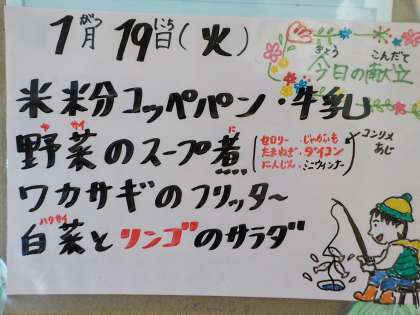 1月19日(火)
がつ にち
きょう こんだて
今日の献立
米粉コッペパン・牛乳
ヤサイ に
野菜のスープ煮
セロリー ・じゃがいも
たまねぎ・ダイコン
にんじん・ミニウィンナー
コンソメ
あじ
ワカサギのフリッター
ハクサイ
白菜とリンゴのサラダ